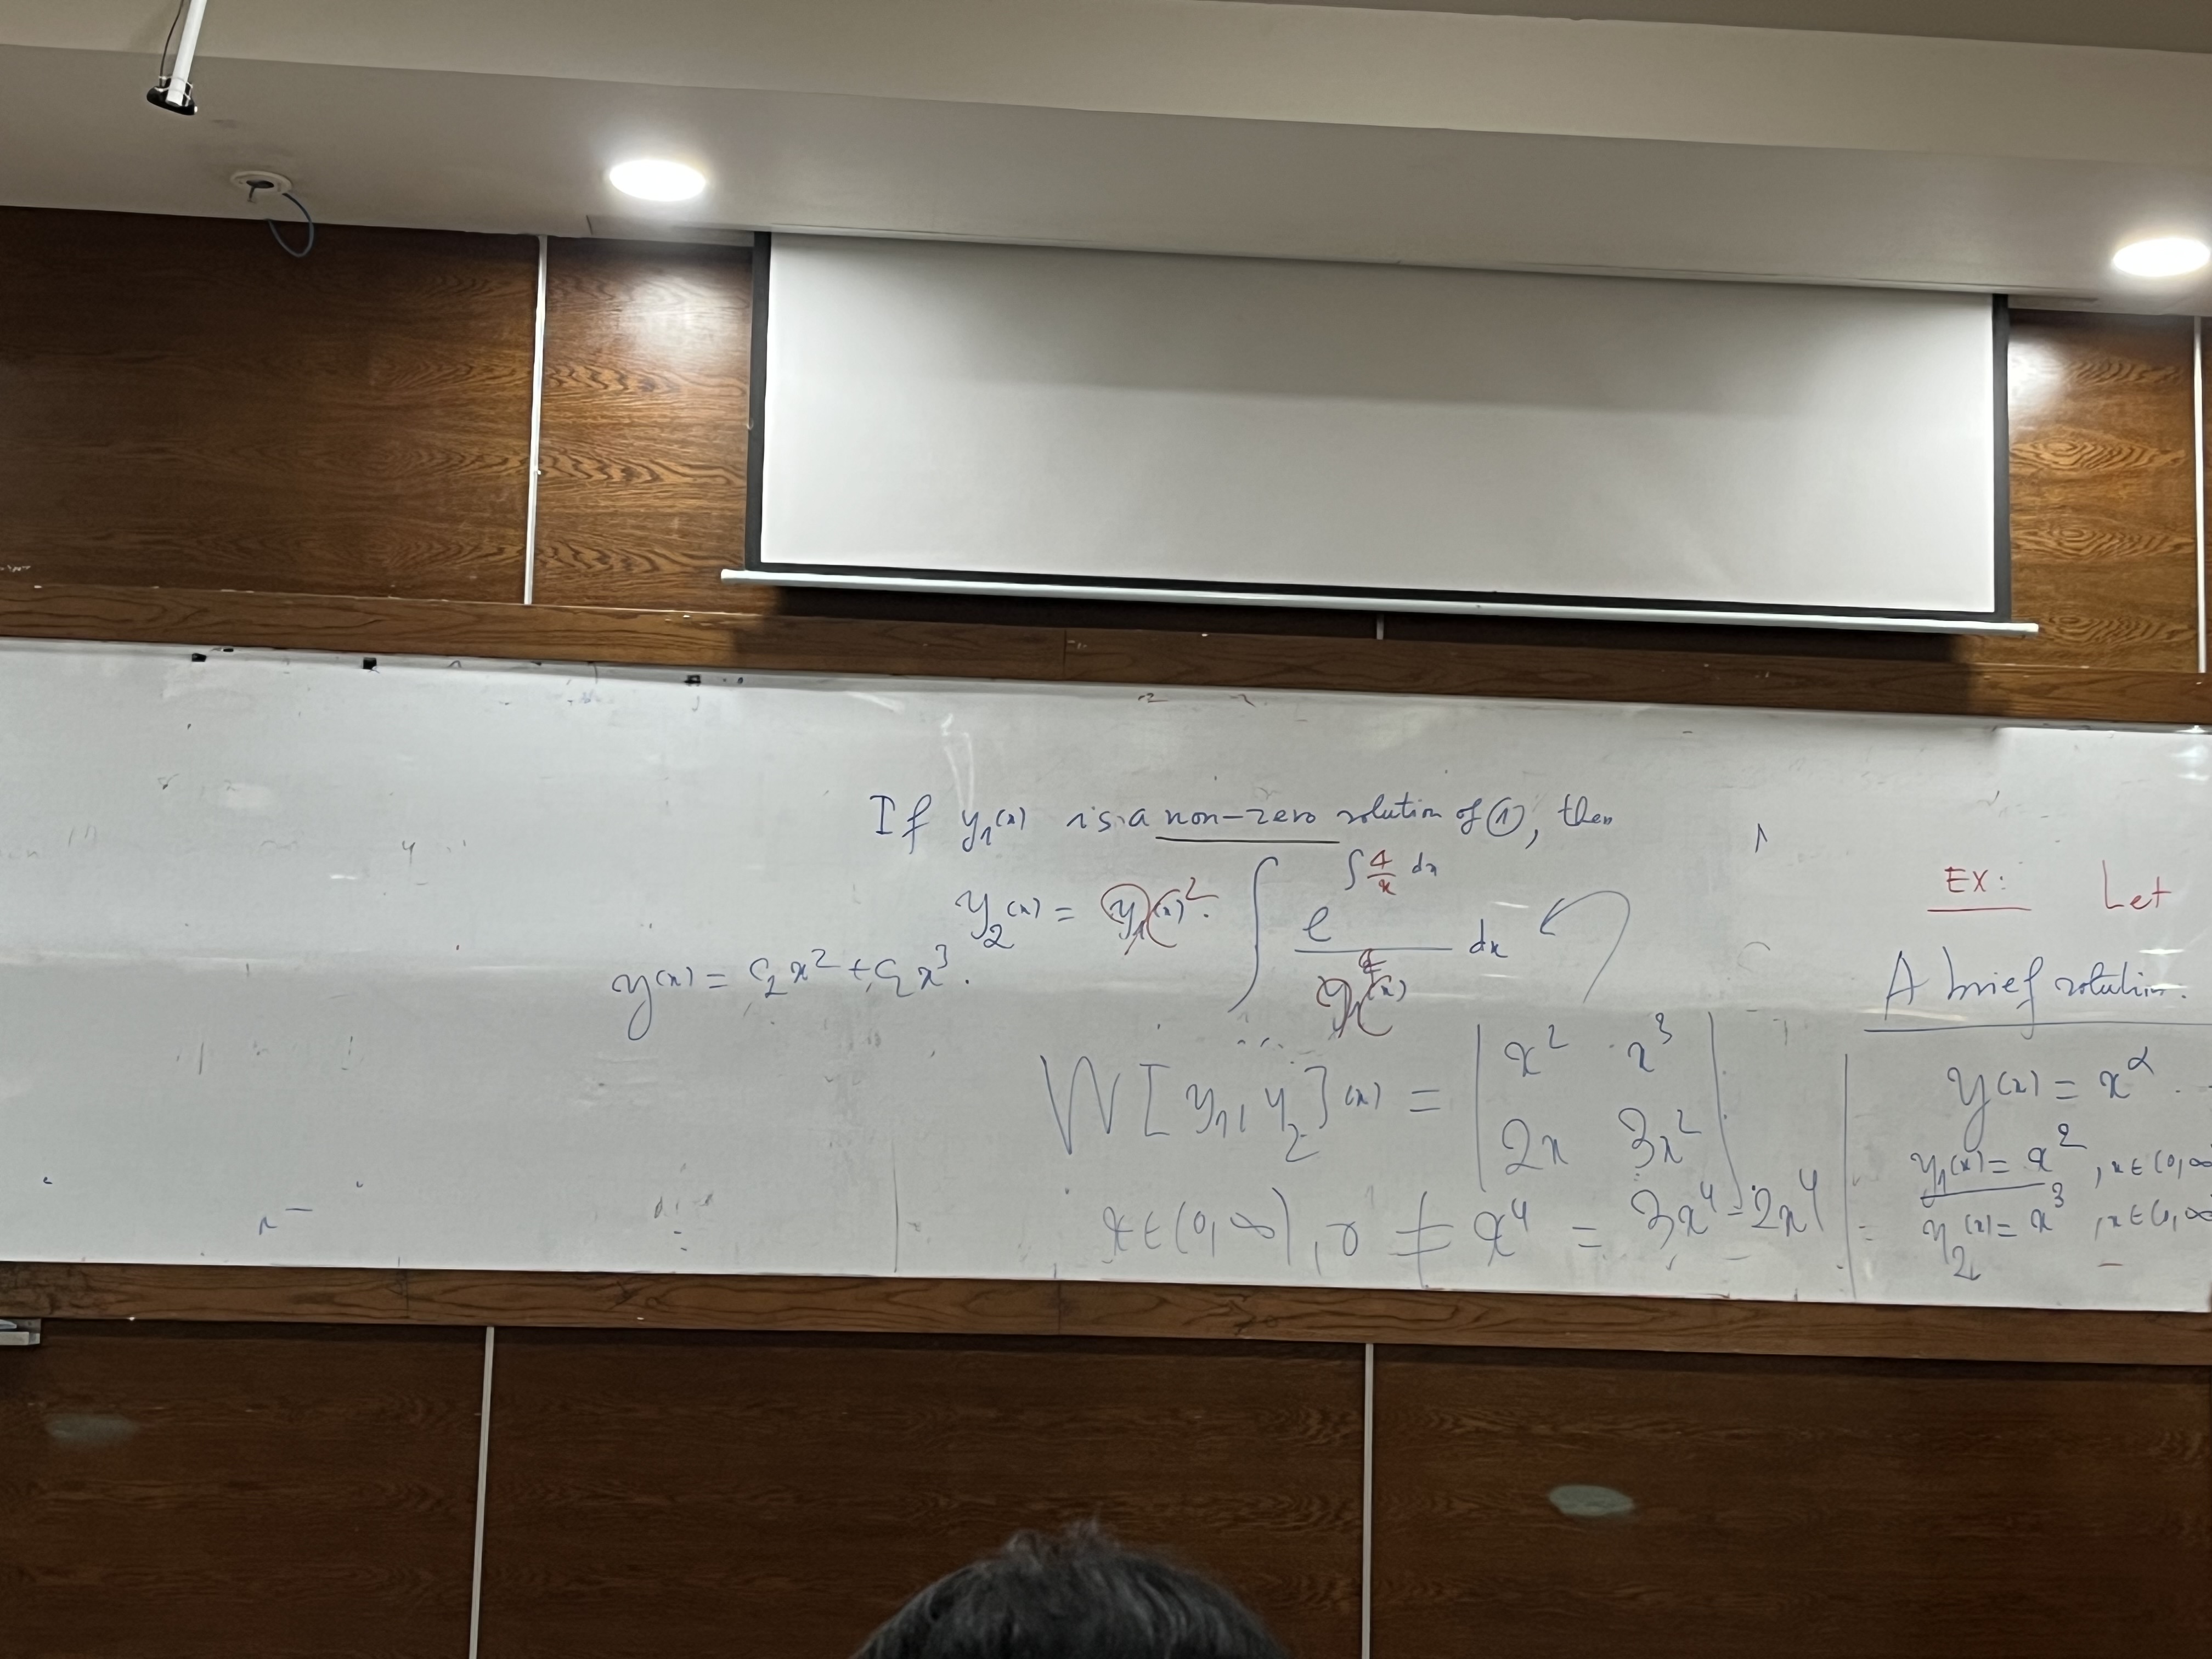 If y₁(x) is a non-zero solution of ①, then
y₂(x) = x² · ∫ e^(∫ 4/x dx) / x⁴ dx
y(x) = c₁x² + c₂x³.
W[y₁, y₂](x) = | x² x³ |
| 2x 3x² |
x ∈ (0, ∞), 0 ≠ x⁴ = 3x⁴ - 2x⁴ =
EX: Let
A brief solution.
y(x) = x^α.
y₁(x) = x², x ∈ (0, ∞
y₂(x) = x³, x ∈ (0, ∞